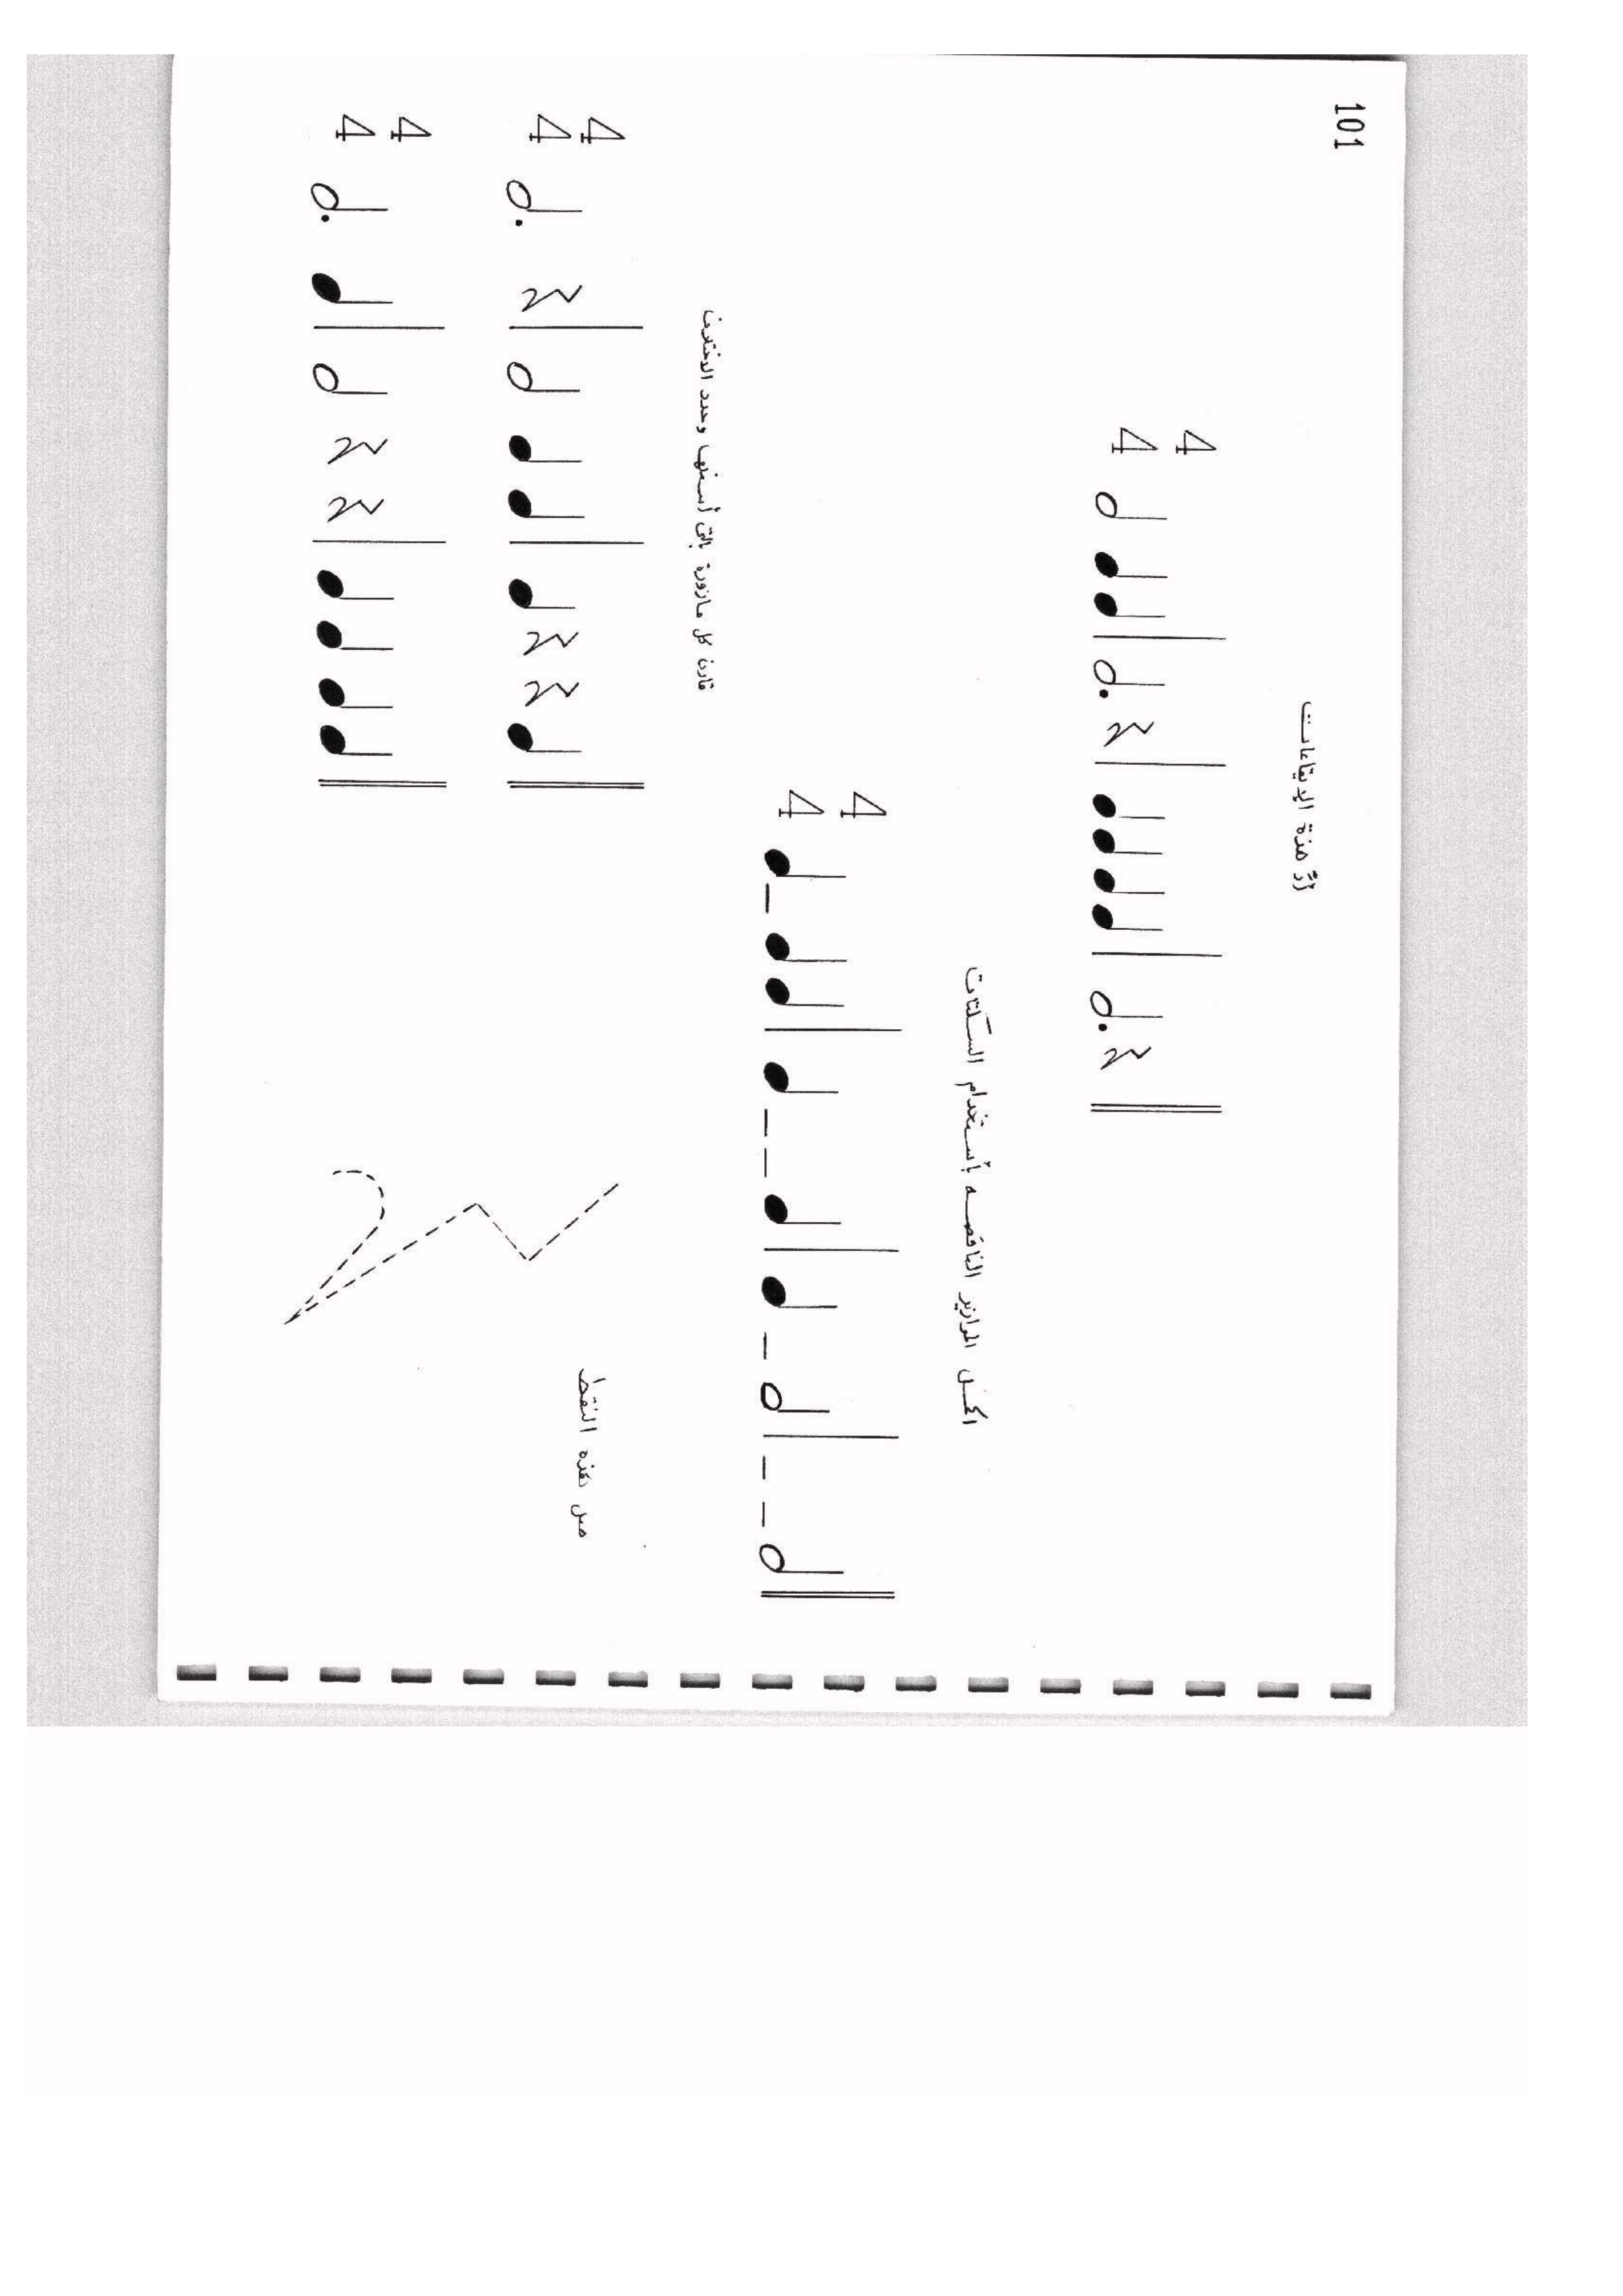 101
أدّ هذة الإيقاعات
4
4
أكمل الموازير الناقصه بأستخدام السكتات
4
4
قارن كل مازورة بالتى أسفلها وحدد الاختلاف
4
4
4
4
صل هذه النقط